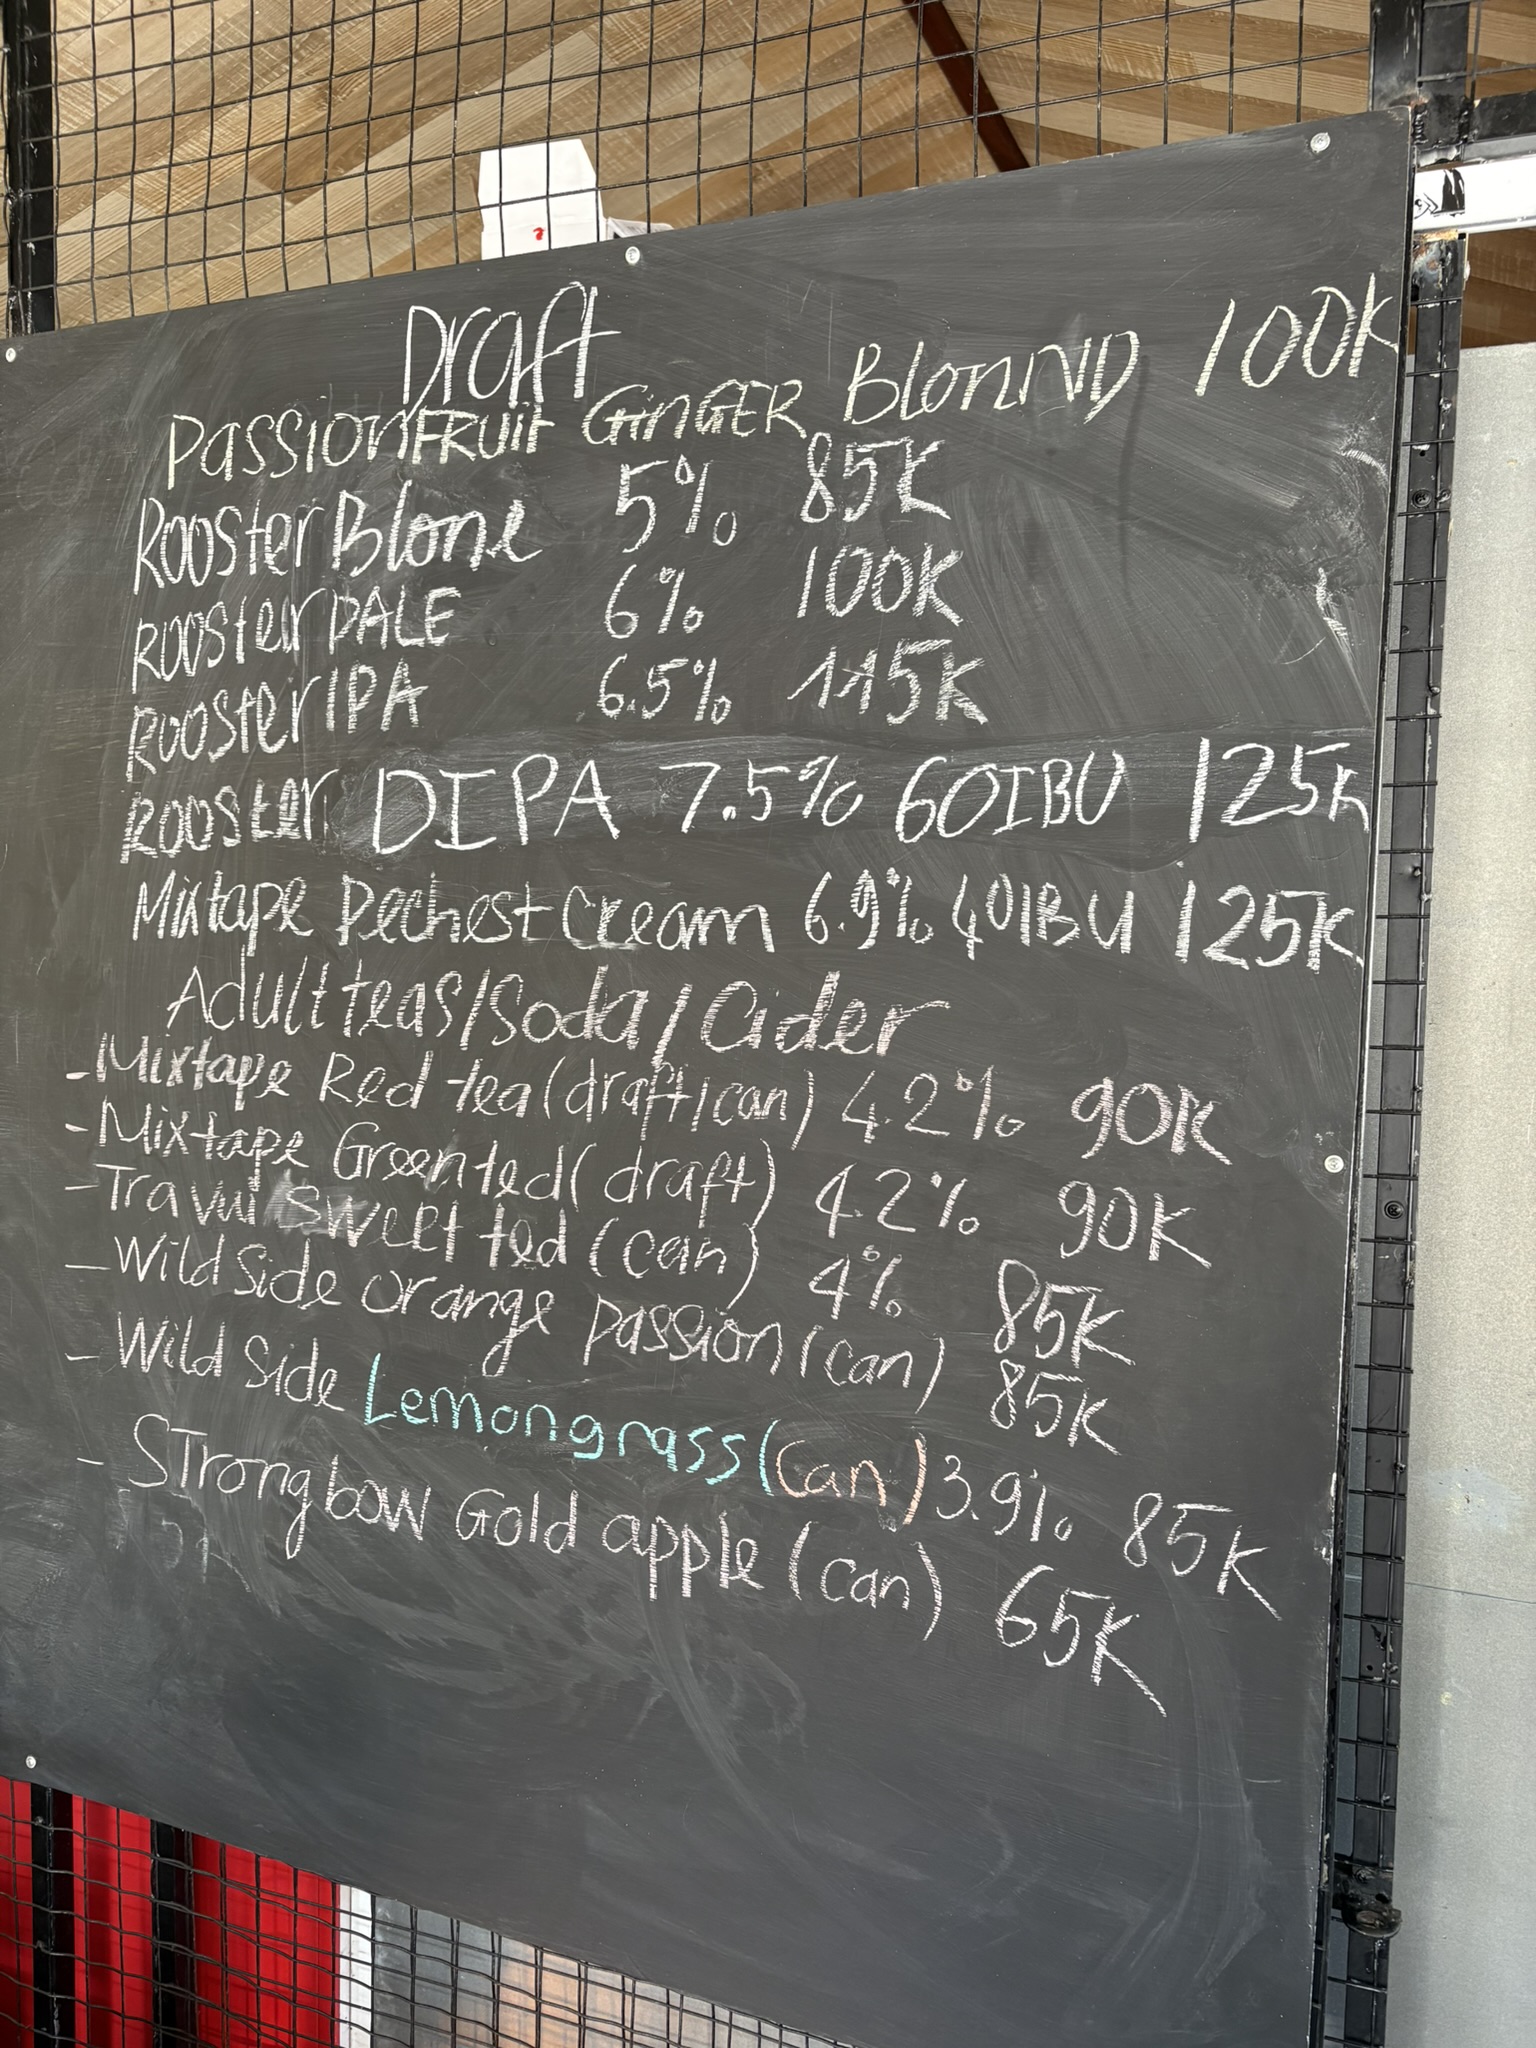 Draft
PassionFRUiT GinGER BlonND 100K
Rooster Blone 5% 85K
Rooster PALE 6% 100K
Rooster IPA 6.5% 115K
Rooster DIPA 7.5% 60IBU 125K
Mixtape Pechest Cream 6.9% 40IBU 125K
Adult teas/Soda/Cider
- Mixtape Red tea (draft/can) 4.2% 90K
- Mixtape Green tea (draft) 4.2% 90K
- Travui Sweet tea (can) 4% 85K
- Wild Side orange passion (can) 85K
- Wild Side Lemongrass (Can) 3.9% 85K
- STrongbow Gold apple (can) 65K